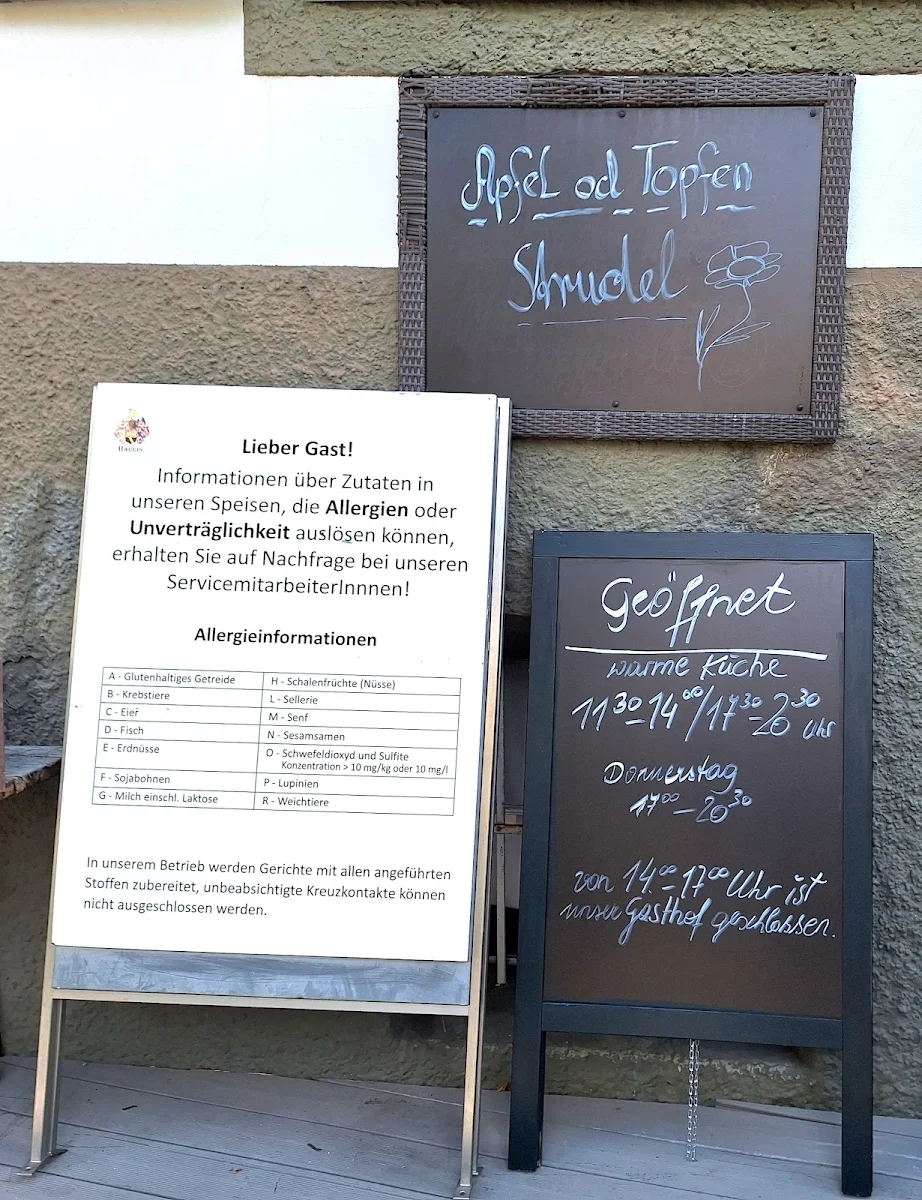 Apfel od Topfen
Strudel
HAUGIS
Lieber Gast!
Informationen über Zutaten in
unseren Speisen, die Allergien oder
Unverträglichkeit auslösen können,
erhalten Sie auf Nachfrage bei unseren
ServicemitarbeiterInnnen!
Allergieinformationen
A - Glutenhaltiges Getreide
B - Krebstiere
C - Eier
D - Fisch
E - Erdnüsse
F - Sojabohnen
G - Milch einschl. Laktose
H - Schalenfrüchte (Nüsse)
L - Sellerie
M - Senf
N - Sesamsamen
O - Schwefeldioxyd und Sulfite
Konzentration > 10 mg/kg oder 10 mg/l
P - Lupinien
R - Weichtiere
In unserem Betrieb werden Gerichte mit allen angeführten
Stoffen zubereitet, unbeabsichtigte Kreuzkontakte können
nicht ausgeschlossen werden.
Geöffnet
warme Küche
11³⁰-14⁰⁰/17³⁰-20³⁰ Uhr
Donnerstag
17⁰⁰-20³⁰
von 14⁰⁰-17⁰⁰ Uhr ist
unser Gasthof geschlossen.